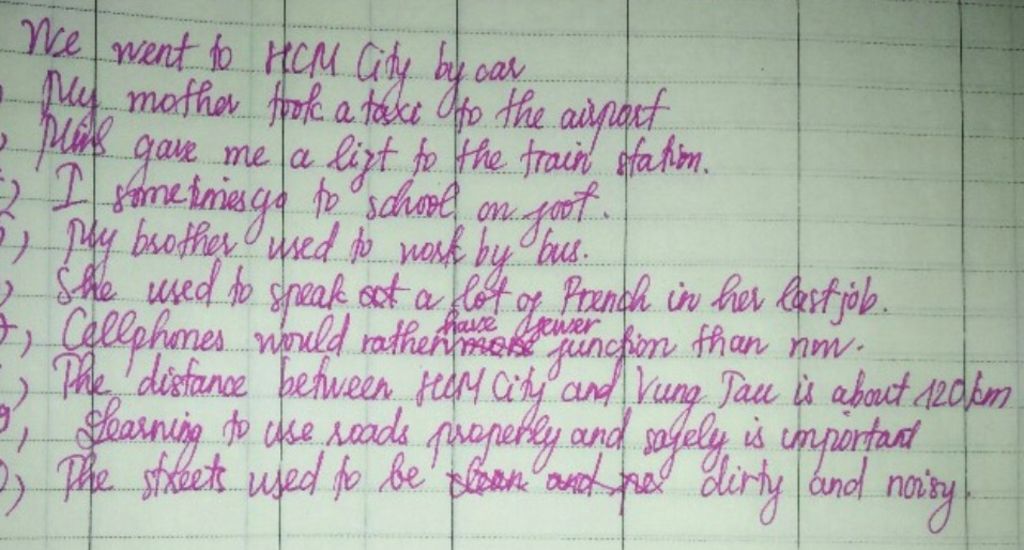 We went to HCM City by car
My mother took a taxi to the airport
gave me a lift to the train station.
) I sometimes go to school on foot.
), My brother used to work by bus.
) She used to speak a lot of French in her last job.
), Cellphones would rather have fewer function than now.
), The distance between HCM City and Vung Tau is about 120 km
9, Learning to use roads properly and safely is important
), The streets used to be dirty and noisy.